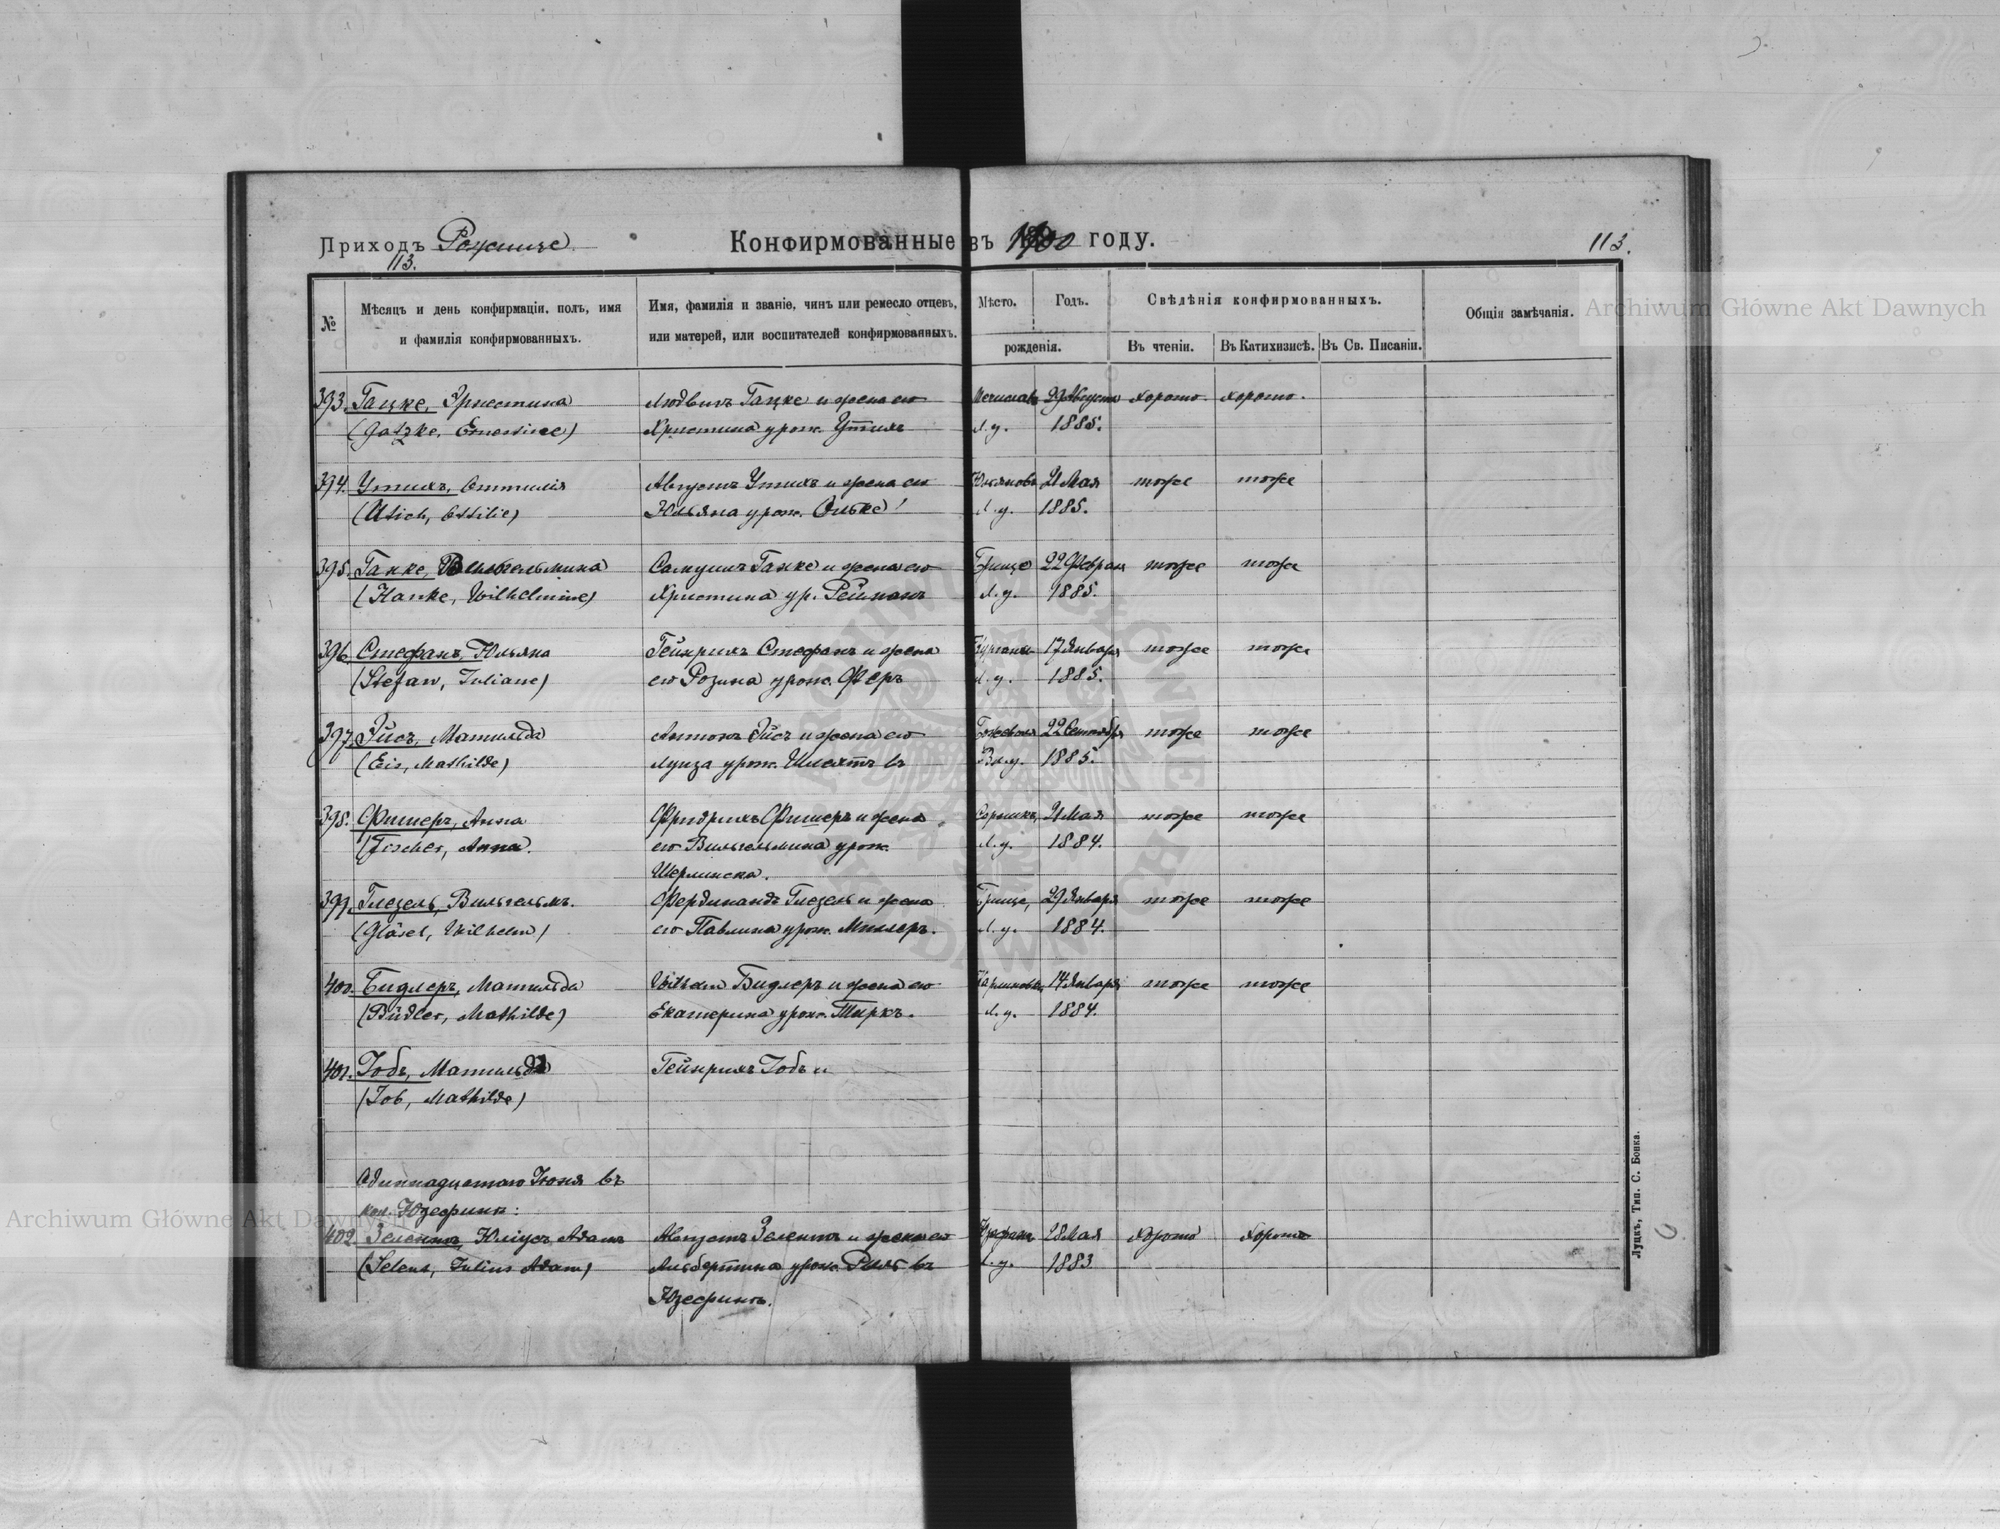 Приходъ Рожище
Конфирмованные въ 1900 году.
113.
113.
№
Мѣсяцъ и день конфирмаціи, полъ, имя
и фамилія конфирмованныхъ.
Имя, фамилія и званіе, чинъ или ремесло отцевъ,
или матерей, или воспитателей конфирмованныхъ.
Мѣсто.
Годъ.
рожденія.
Свѣдѣнія конфирмованныхъ.
Въ чтеніи.
Въ Катихизисѣ.
Въ Св. Писаніи.
Общія замѣчанія.
393. Гацке, Эрнестина Людвигъ Гацке и жена его Августа хорошо хорошо.
(Gatzke, Ernestine) Христина урож. Утихъ Л. у. 1885.
394. Утихъ, Оттилія Августъ Утихъ и жена его 21 Мая тоже тоже
(Utich, Ottilie) Юльяна урож. Л. у. 1885.
395. Ганке, Вильгельмина Самуилъ Ганке и жена его 22 Февраля тоже тоже
(Hanke, Wilhelmine) Христина ур. Рейманъ Л. у. 1885.
396. Стефанъ, Юльяна Гейнрихъ Стефанъ и жена 17 Января тоже тоже
(Stefan, Juliane) его Розина урож. Л. у. 1885.
397. Эйсъ, Матильда Антонъ Эйсъ и жена его 22 Сентября тоже тоже
(Eis, Mathilde) Луиза урож. Вл. у. 1885.
398. Фишеръ, Анна Фридрихъ Фишеръ и жена 21 Мая тоже тоже
(Fischer, Anna) его Вильгельмина урож. Л. у. 1884.
399. Глезель, Вильгельмъ. Фердинандъ Глезель и жена 29 Января тоже тоже
(Gläsel, Wilhelm) его Павлина урож. Миллеръ. Л. у. 1884.
400. Бидлеръ, Матильда Бидлеръ и жена его 14 Января тоже тоже
(Büdler, Mathilde) Екатерина урож. Тиркъ. Л. у. 1884.
401. Іобъ, Матильда Гейнрихъ Іобъ и
(Job, Mathilde)
Одиннадцатаго Іюня въ
кол. Юзефинъ:
402. Зелентъ, Юліусъ Адамъ Августъ Зелентъ и жена его Юзефинъ 28 Мая хорошо хорошо
(Selent, Julius Adam) Альбертина урож. въ Л. у. 1883.
Юзефинъ.
Луцкъ, Тип. С. Бонка.
Archiwum Główne Akt Dawnych
Archiwum Główne Akt Dawnych
ARCHIWUM GŁÓWNE AKT DAWNYCH